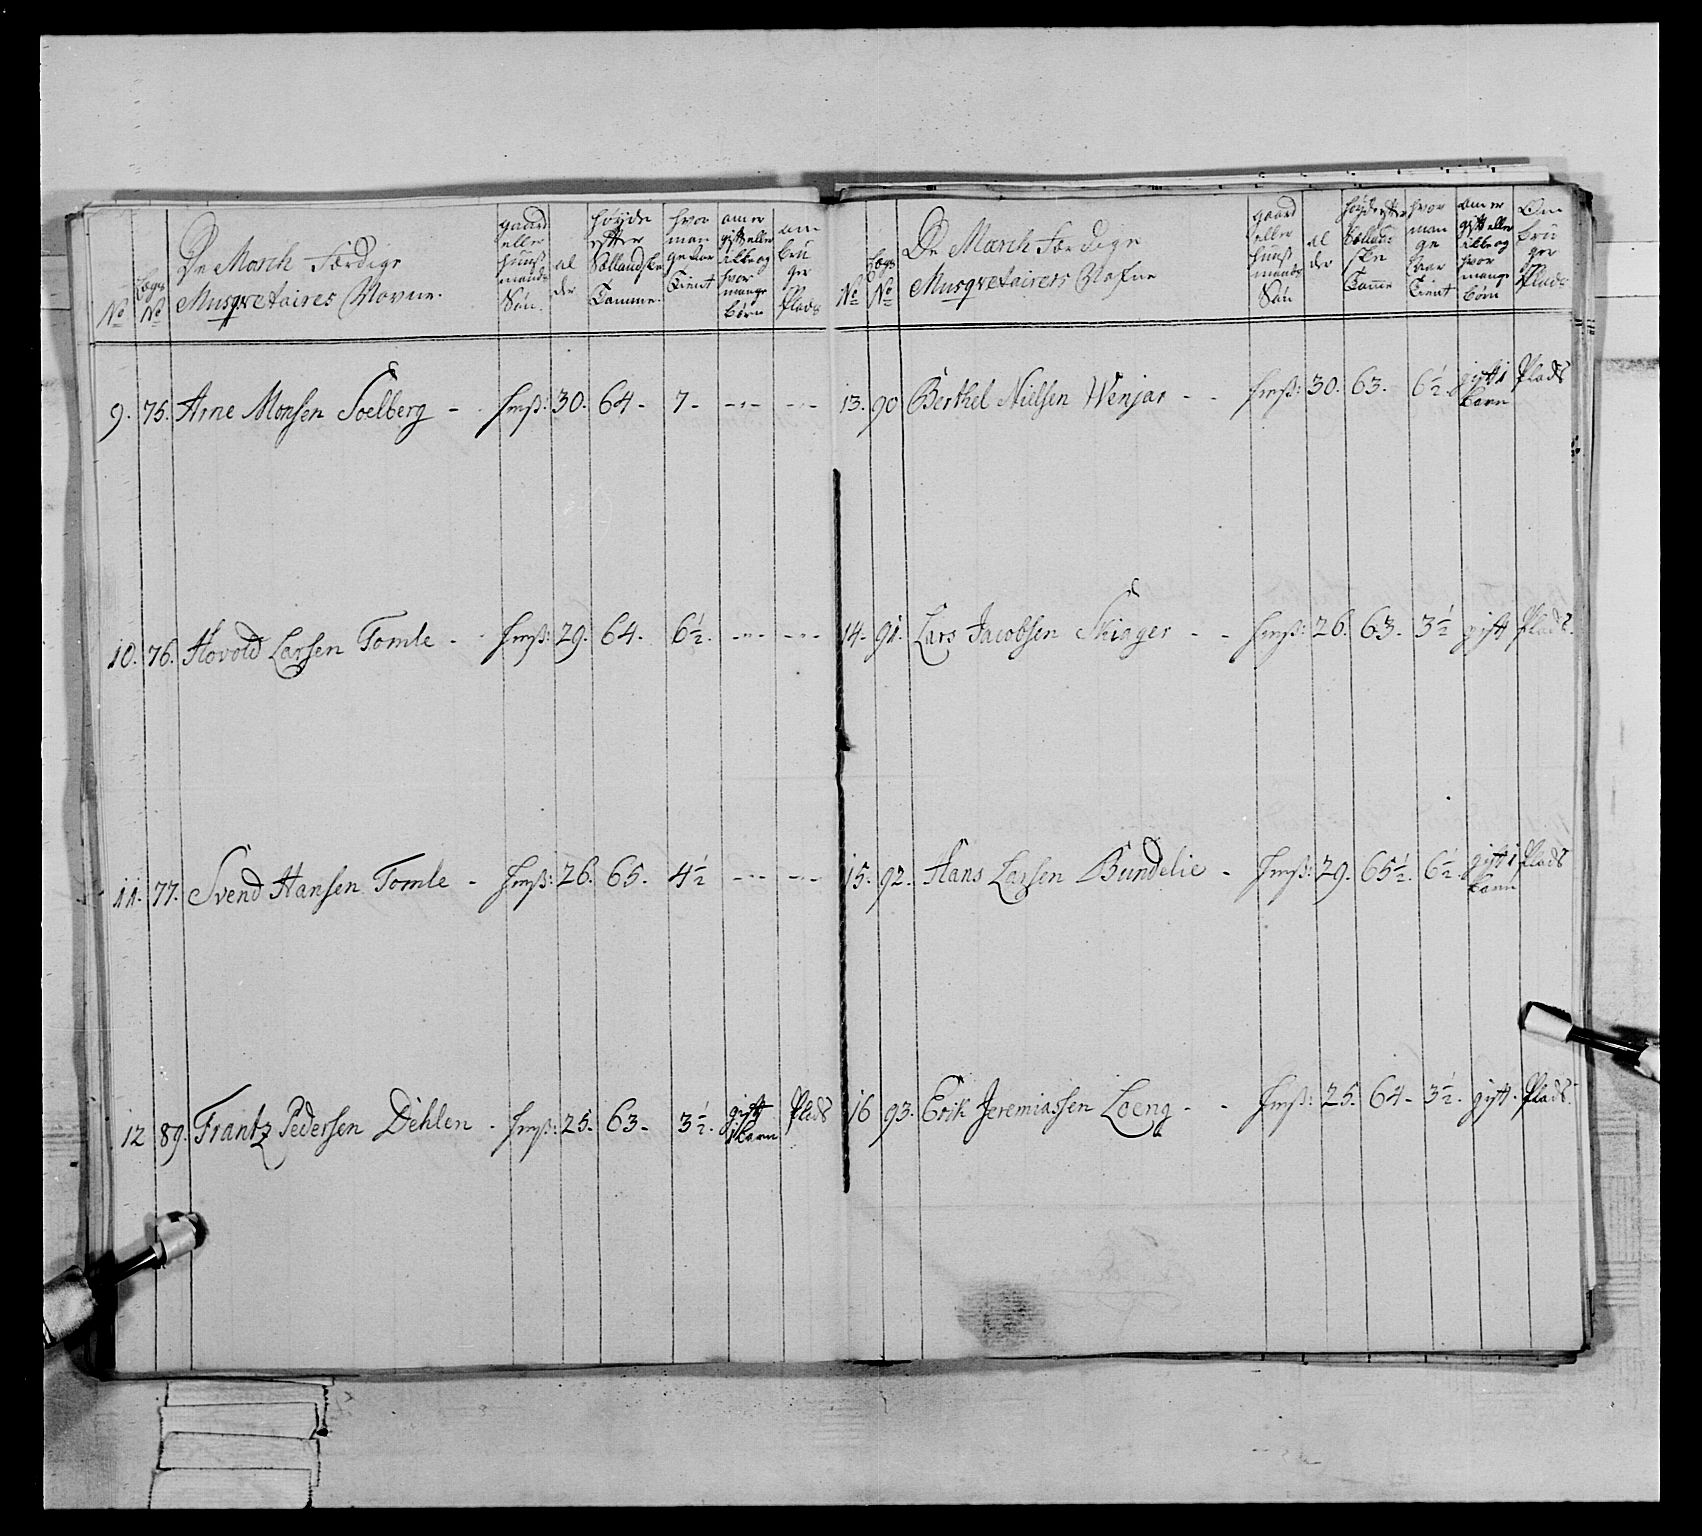 No
Lægs No
De March Færdige
Musqvetairers Navne.
gaard eller huusmands Søn.
al der
høyde efter Hollandske Tomme.
hvor mange aar Tient
om er gift eller ikke og hvor mange børn
om bruger Plads
9. 75. Arne Monsen Soelberg - hmß: 30. 64- 7- --- ---
10. 76. Hovold Larsen Tomle - hmß: 29. 64- 6½. --- ---
11. 77. Svend Hansen Tomle - hmß: 26. 65- 4½ --- ---
12 89. Frantz Pedersen Dehlen - hmß: 25. 63- 3½. gift 1 barn Plads
No
Lægs No
De March Færdige
Musqvetairers Nafne
gaard eller huusmands Søn
al der
høyde efter Hollandske Tomme
hvor mange aar Tient
om er gift eller ikke og hvor mange børn
Om bruger Plads
13. 90 Berthel Nielsen Wenjar - - hmß: 30. 63. 6½ gift 1 barn Plads
14. 91. Lars Jacobsen Skiager - - hmß: 26. 63- 3½ gift Plads.
15. 92. Hans Larsen Bundelie - hmß: 29. 65½. 6½. gift 1 barn Plads
16 93. Erik Jeremiassen Loeng - - hmß: 25. 64- 3½. gift. Plads.